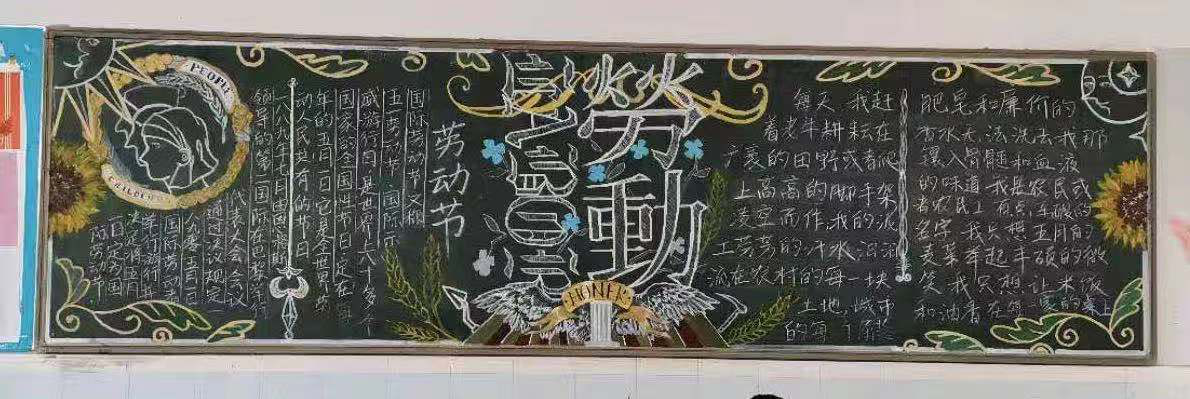 PEOPLE
CHILDREN
劳动节
国际劳动节又称
五一劳动节、国际示
威游行日是世界上八十多个
国家的全国性节日,定在每
年的五月一日,它是全世界劳
动人民共有的节日
一八八九年七月由恩格斯
领导的第二国际在巴黎举行
代表大会会议
通过决议规定一
八九零年五月一日
国际劳动者
举行游行并
决定将五月
一日定为国
际劳动节
勞動
HONER
每天我赶
着老牛耕耘在
广袤的田野或者爬
上高高的脚手架
凌空而作,我的
工 的汗水汩汩
流在农村的每一块
土地,城市
的每一
肥皂和廉价的
香水无法洗去我那
镶入骨髓和血液
的味道 我是农民或
者农民工有点 的
名字 我只想五月的
麦 举起丰硕的微
笑 我只想让米饭
和油香在 家的桌上